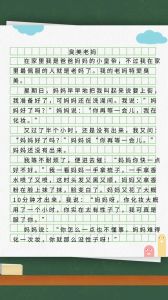 臭美老妈
在家里我是爸爸妈妈的小皇帝，不过我在家
里最佩服的人就是老妈了。我的老妈特爱臭
美。
星期日，妈妈早早地把我叫起来说要上街，
我准备好了，可妈妈还在洗漱间。我说：“妈
妈好了吗？”妈妈说：“你再等一会儿，我在
化妆。”
又过了半个小时，还是没出来，我说：“妈
妈好了吗？”妈妈说“你再等一会儿。”
妈妈还没有出来。
我等不耐烦了，便进去催：“妈妈你快一
点好不好。”我一看妈妈一手拿梳子，一手拿香
水喷了又喷，这时头发又黑又顺。妈妈又拿香
粉在脸上抹了抹，脸变白了。妈妈又花了大概
10分钟才画好。我说：“妈呀，你化妆大概
用了一个小时。你实在太有性子了，我可真是
佩服你。”
妈妈说：“你怎么一点也不懂事，妈妈难得
化一次妆，你就那么没性子呀！”